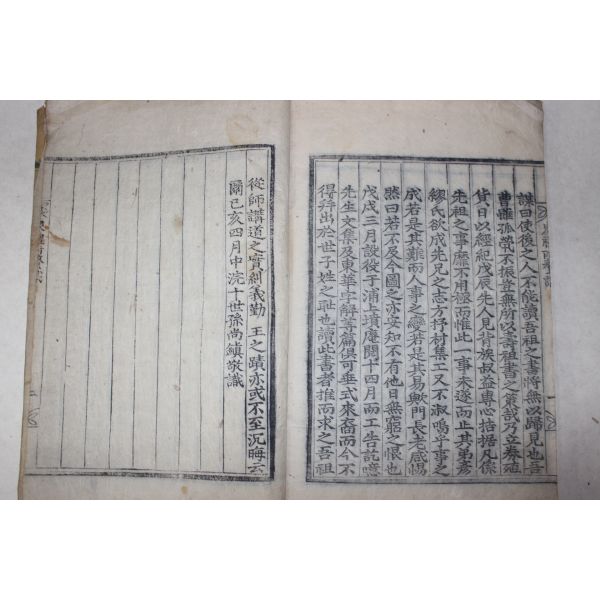 謀曰使後之人不能讀吾祖之書將無以歸見也吾
曹雖孤煢不振豈無所以壽祖書之策哉乃立券殖
貨日以經紀戊辰先人見背族叔益專心拮据凡係
先祖之事靡不用極而惟此一事未遂而止其弟彦
繆氏欲成先兄之志方抒村集工又不淑嗚乎事之
成若是其難而人事之變若是其易歟門長老咸惕
然曰若不及今圖之亦安知不有他日無窮之恨也
戊戌三月設役于浦上墳庵閱十四月而工告訖噫
先生文集及東華字解等篇俱可垂式來裔而今不
得幷出於世子姓之恥也讀此書者推而求之吾祖
從師講道之實糾義勤 王之蹟亦或不至沉晦云
爾己亥四月中浣十世孫尚鎭敬識